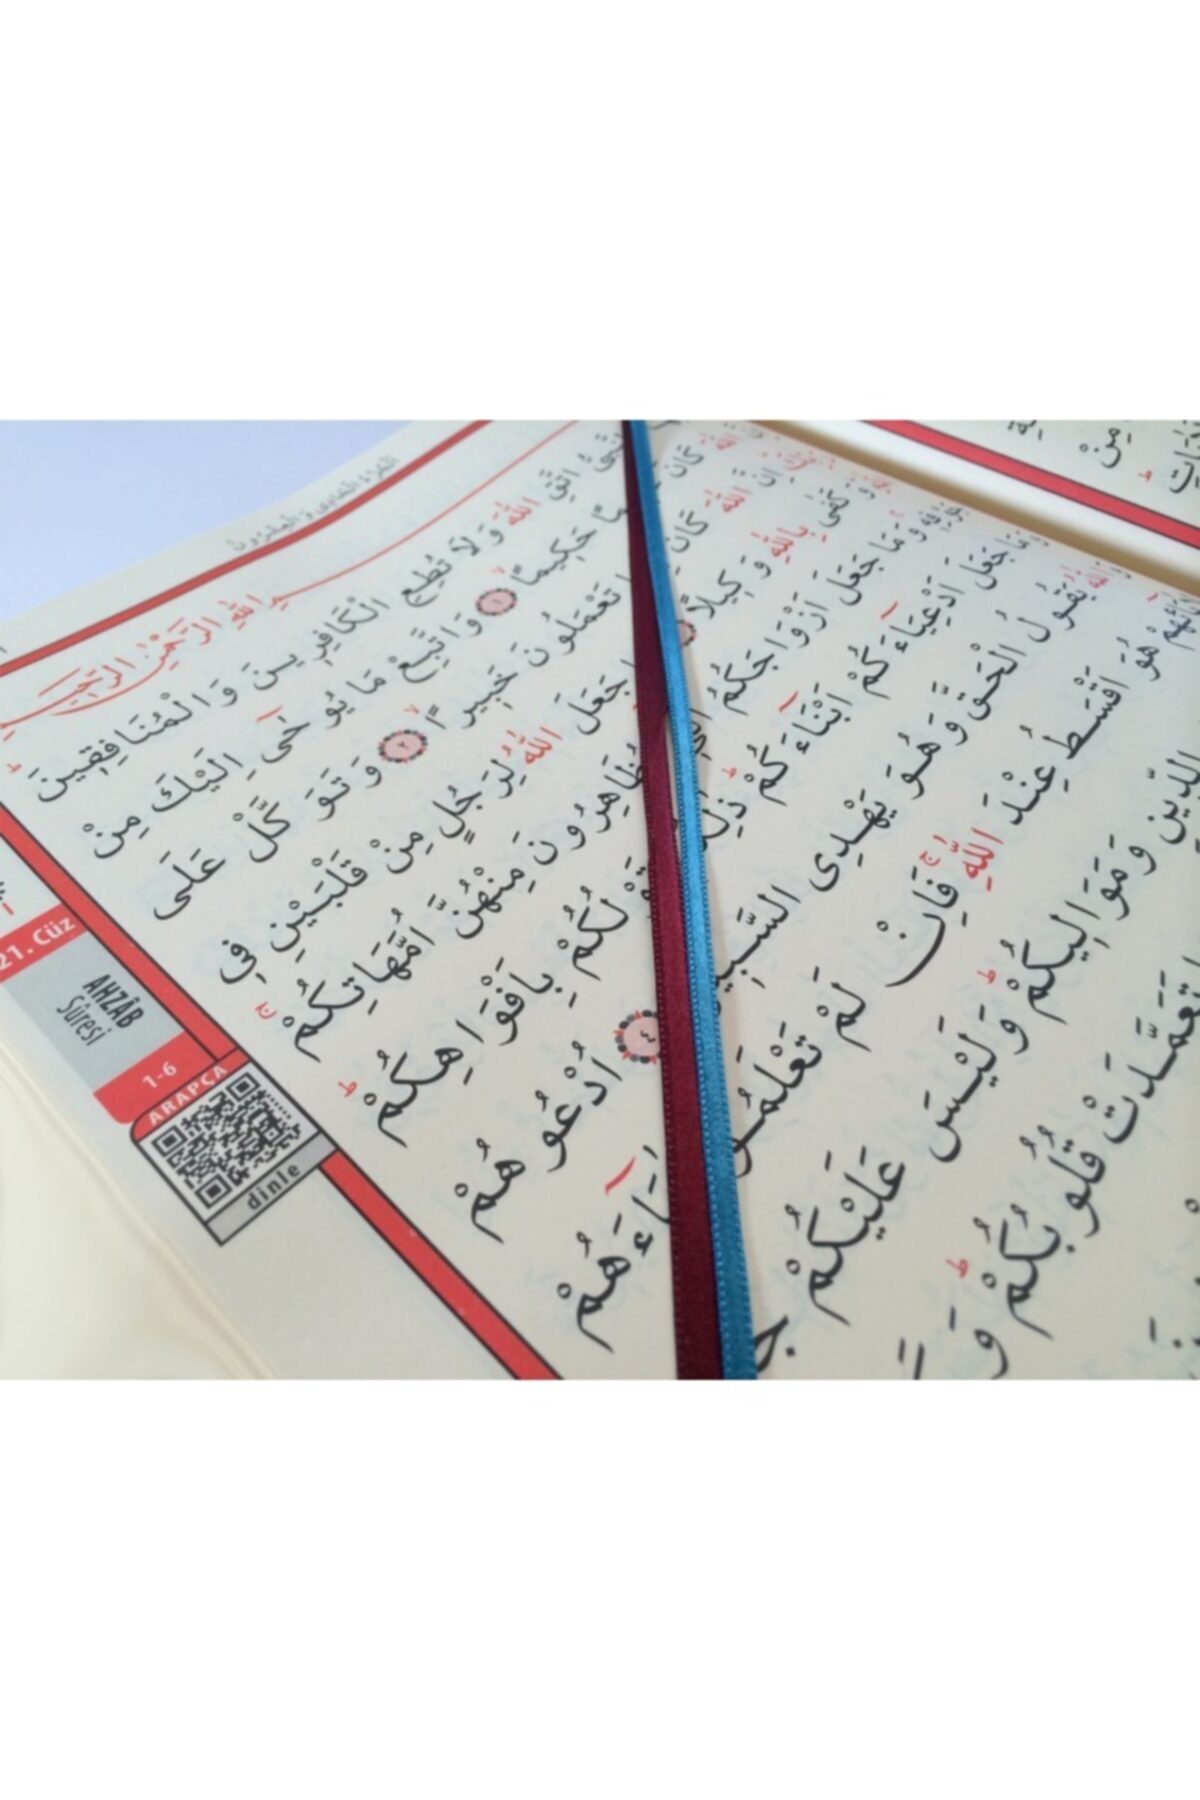 الجزء الحادى والعشرون
اللهِ الرَّحْمٰنِ الرَّحِيمِ
اتَّقِ اللهَ وَلَا تُطِعِ الْكَافِرِينَ وَالْمُنَافِقِينَ ط
كَانَ حَكِيمًا ١ وَاتَّبِعْ مَا يُوحٰى اِلَيْكَ مِنْ
اِنَّ اللهَ كَانَ تَعْمَلُونَ خَبِيرًا ٢ وَتَوَكَّلْ عَلَى
وَكَفٰى بِاللهِ وَكِيلًا جَعَلَ اللهُ لِرَجُلٍ مِنْ قَلْبَيْنِ فِى
وَمَا جَعَلَ اَزْوَاجَكُمُ تُظَاهِرُونَ مِنْهُنَّ اُمَّهَاتِكُمْ ج
وَمَا جَعَلَ اَدْعِيَاءَكُمْ اَبْنَاءَكُمْ ط ذٰلِكُمْ لَكُمْ بِاَفْوَاهِكُمْ ط
وَاللهُ يَقُولُ الْحَقَّ وَهُوَ يَهْدِى السَّبِيلَ ٤ اُدْعُوهُمْ
هُوَ اَقْسَطُ عِنْدَ اللهِ ج فَاِنْ لَمْ تَعْلَمُوا اٰبَاءَهُمْ
الدِّينِ وَمَوَالِيكُمْ ط وَلَيْسَ عَلَيْكُمْ
تَعَمَّدَتْ قُلُوبُكُمْ ط
مِنْ
21. Cüz
AHZÂB
Sûresi
1-6
ARAPÇA
dinle